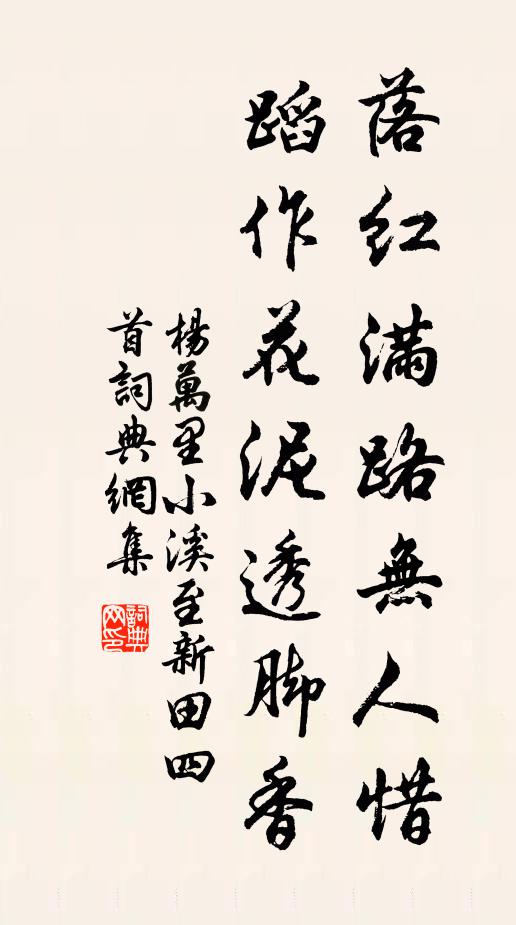 落红滿路無人惜
蹈作花泥透脚香
楊萬里小溪至新田四
首詞典網集
詞典网印